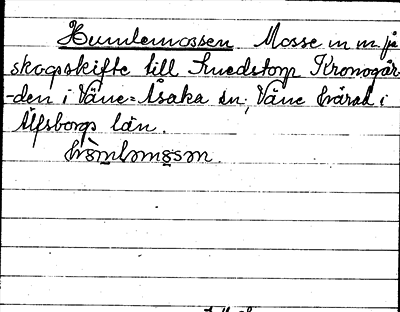 Humlemossen Mosse m m på
skogsskifte till Snedstorp Kronogår-
-den i Väne-Åsaka sn, Väne härad i
Älfsborgs län.